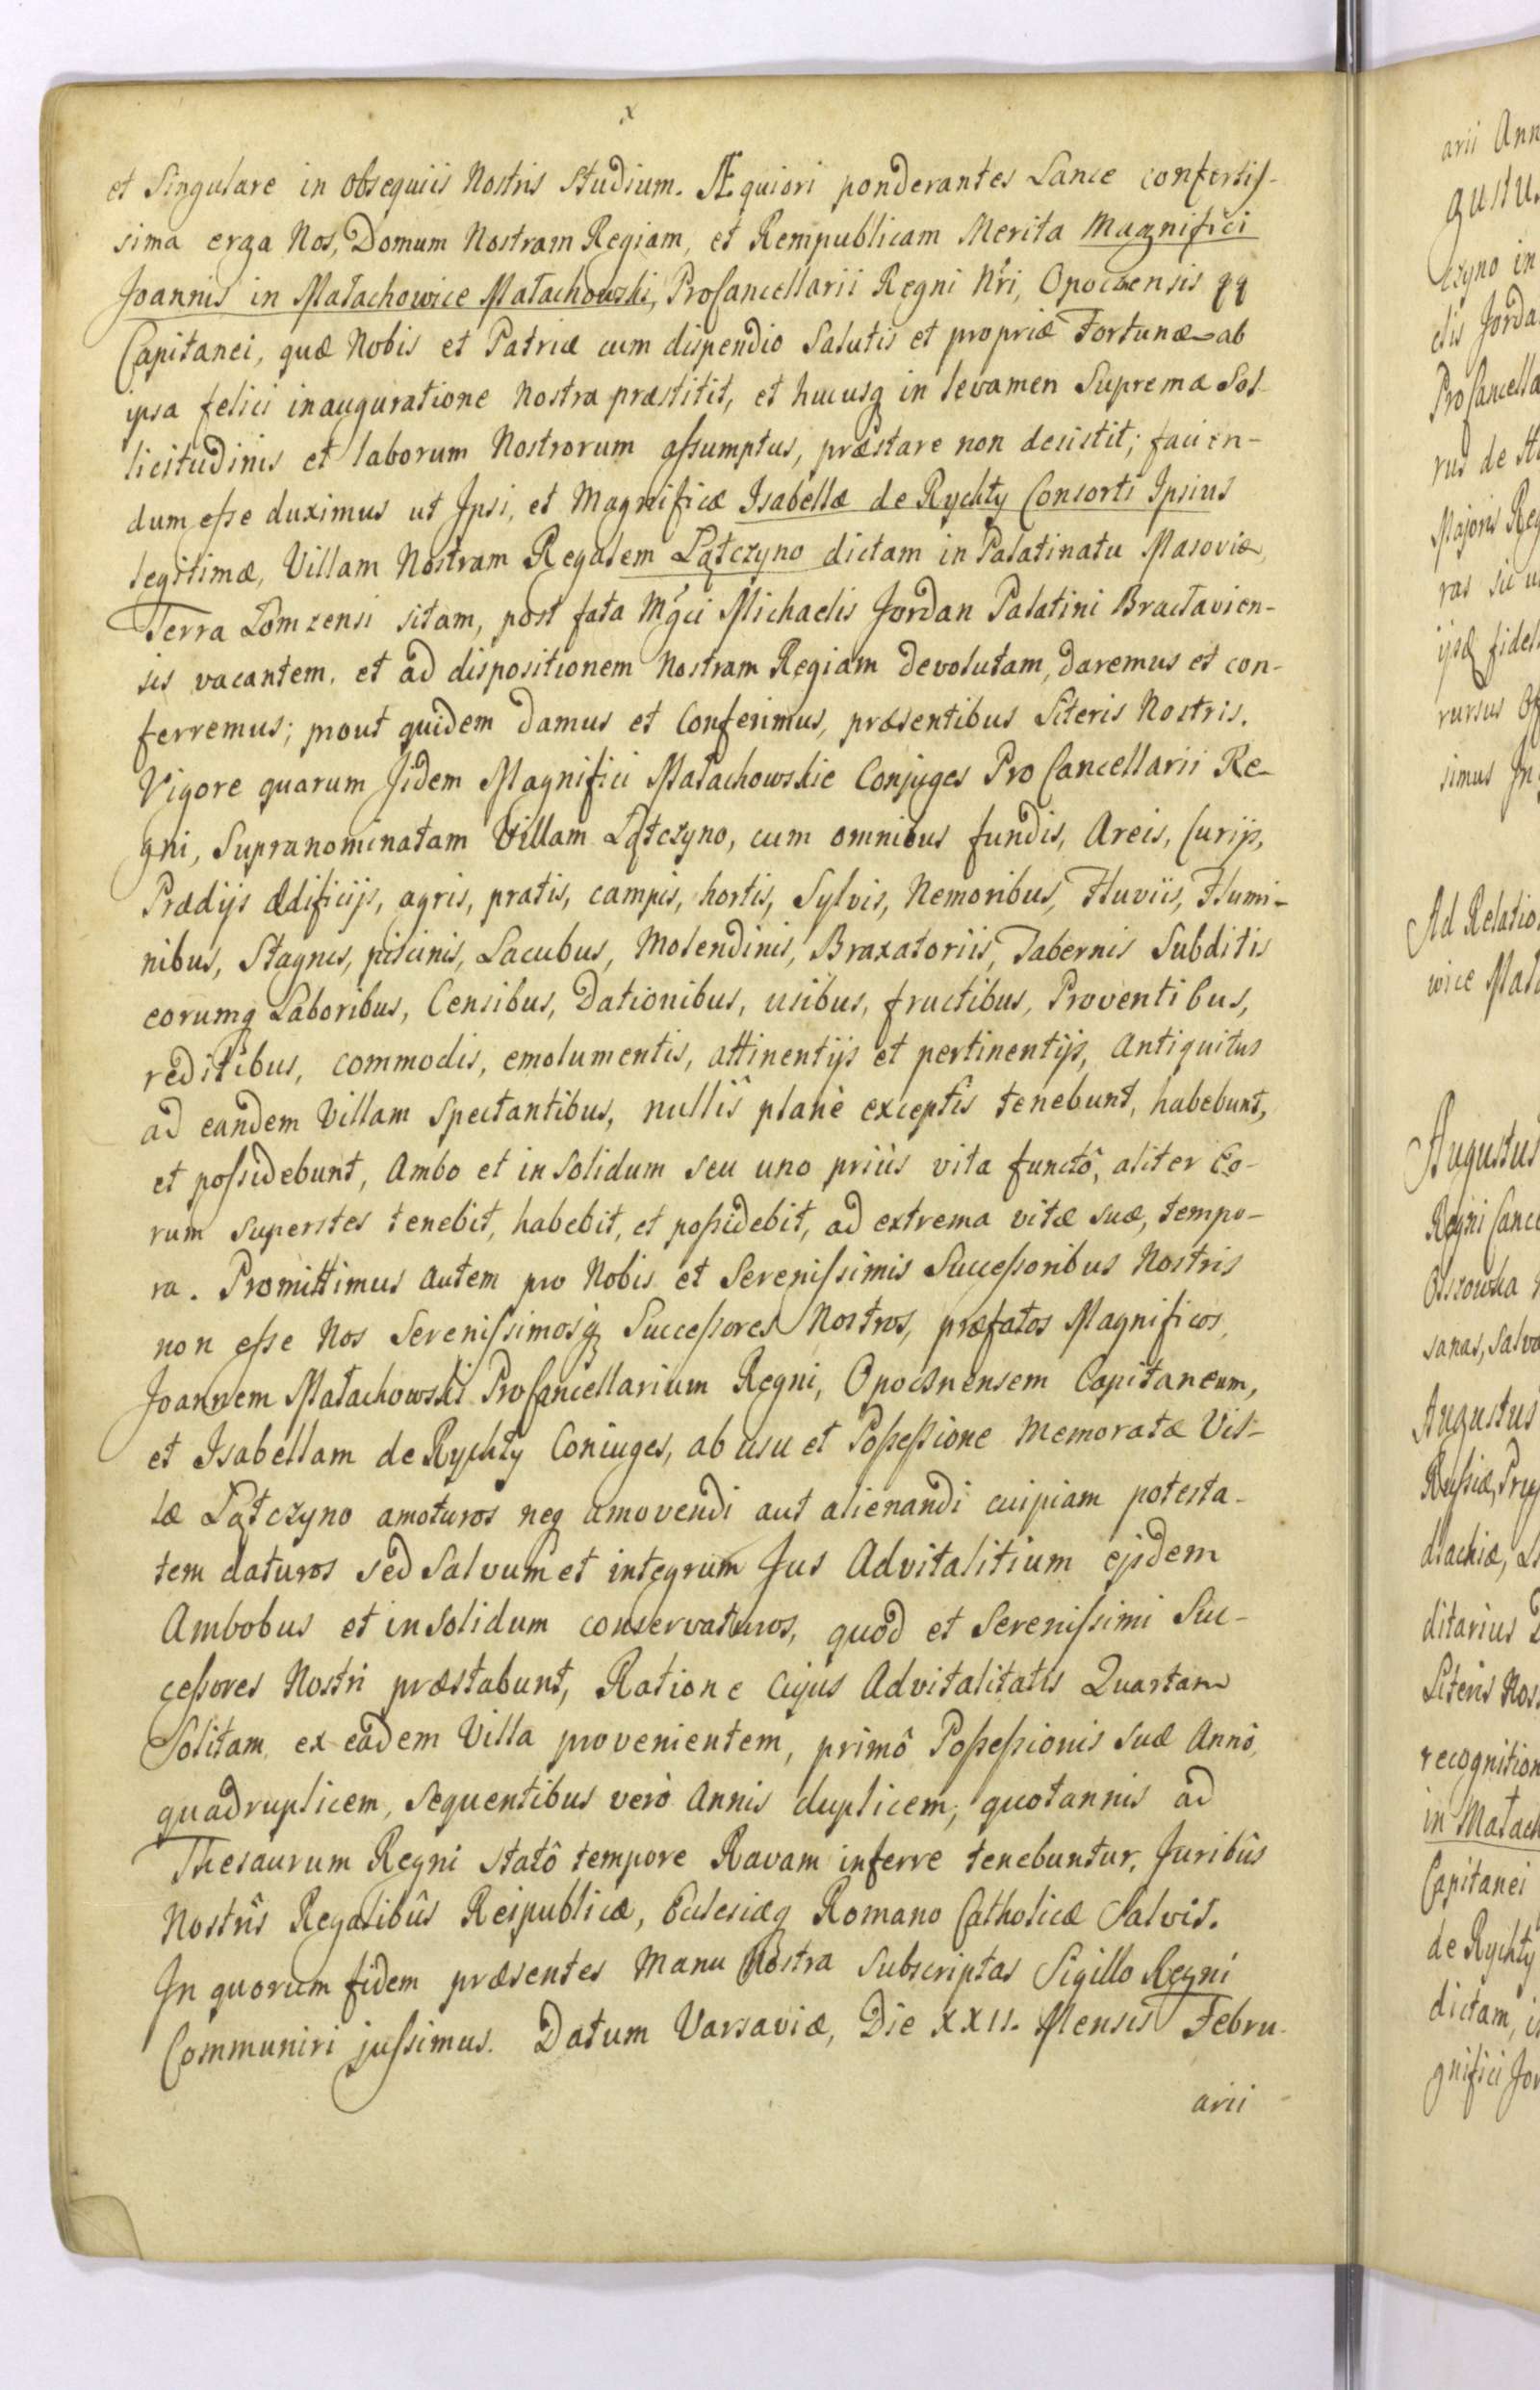 x
et Singulare in obsequiis Nostris Studium. Æquiori ponderantes Lance confertis-
sima erga Nos, Domum Nostram Regiam, et Rempublicam Merita Magnifici
Joannis in Małachowice Małachowski, ProCancellarii Regni Nri, Opocznensis qq
Capitanei, quæ Nobis et Patriæ cum dispendio Salutis et propriæ Fortunæ ab
ipsa felici inauguratione Nostra præstitit, et hucusq in levamen Supremæ Sol-
licitudinis et laborum Nostrorum assumptus, præstare non desistit; facien-
dum esse duximus ut Ipsi, et Magnificæ Isabellæ de Rychty Consorti Ipsius
legitimæ, Villam Nostram Regalem Łątczyno dictam in Palatinatu Masoviæ,
Terra Łomzensi sitam, post fata Mgci Michaelis Jordan Palatini Bracłavien-
sis vacantem, et ad dispositionem Nostram Regiam devolutam, daremus et con-
ferremus; prout quidem damus et Conferimus, præsentibus Literis Nostris.
Vigore quarum Iidem Magnifici Małachowskie Conjuges ProCancellarii Re-
gni, Supranominatam Villam Łątczyno, cum omnibus fundis, Areis, Curijs,
Prædijs Ædificijs, agris, pratis, campis, hortis, Sylvis, Nemoribus, Fluviis, Flumi-
nibus, Stagnis, piscinis, Lacubus, Molendinis, Braxatoriis, Tabernis Subditis
eorumq Laboribus, Censibus, Dationibus, usibus, fructibus, Proventibus,
reditibus, commodis, emolumentis, attinentijs et pertinentijs, Antiquitus
ad eandem Villam Spectantibus, nullîs planè exceptis tenebunt, habebunt,
et possidebunt, Ambo et in Solidum seu uno priùs vita functô, aliter Eo-
rum Superstes tenebit, habebit, et possidebit, ad extrema vitæ suæ, tempo-
ra. Promittimus autem pro Nobis et Serenissimis Successoribus Nostris
non esse Nos Serenissimosq Successores Nostros, præfatos Magnificos,
Joannem Małachowski ProCancellarium Regni, Opocznensem Capitaneum,
et Isabellam de Rychty Coniuges, ab usu et Possessione Memoratæ Vil-
læ Łątczyno amoturos neq amovendi aut alienandi cuipiam potesta-
tem daturos sed Salvum et integrum Jus Advitalitium ejsdem
Ambobus et in Solidum conservaturos, quod et Serenissimi Suc-
cessores Nostri præstabunt, Ratione cujus Advitalitatis Quartam
Solitam, ex eadem Villa provenientem, primô Possessionis suæ Annô,
quadruplicem, Sequentibus verò Annis duplicem, quotannis ad
Thesaurum Regni statô tempore Ravam inferre tenebuntur, Juribûs
Nostrîs Regalibûs Reipublicæ, Ecclesiæq Romano Catholicæ Salvis.
In quorum fidem præsentes Manu Nostra Subscriptas Sigillo Regni
Communiri jussimus. Datum Varsaviæ, Die XXII. Mensis Febru-
arii
arii Ann
gustu
czyno in
elis Jorda
ProCancella
Majoris Reg
rursus
simus
Ad Relatio
wice Mał
Augustus
Regni Canc
sanas, salvo
Augustus
Russiæ, Pru
dlachiæ,
ditarius
Literis Nos
recognition
in Małach
Capitanei
de Rychty
dictam, i
gnifici Jo